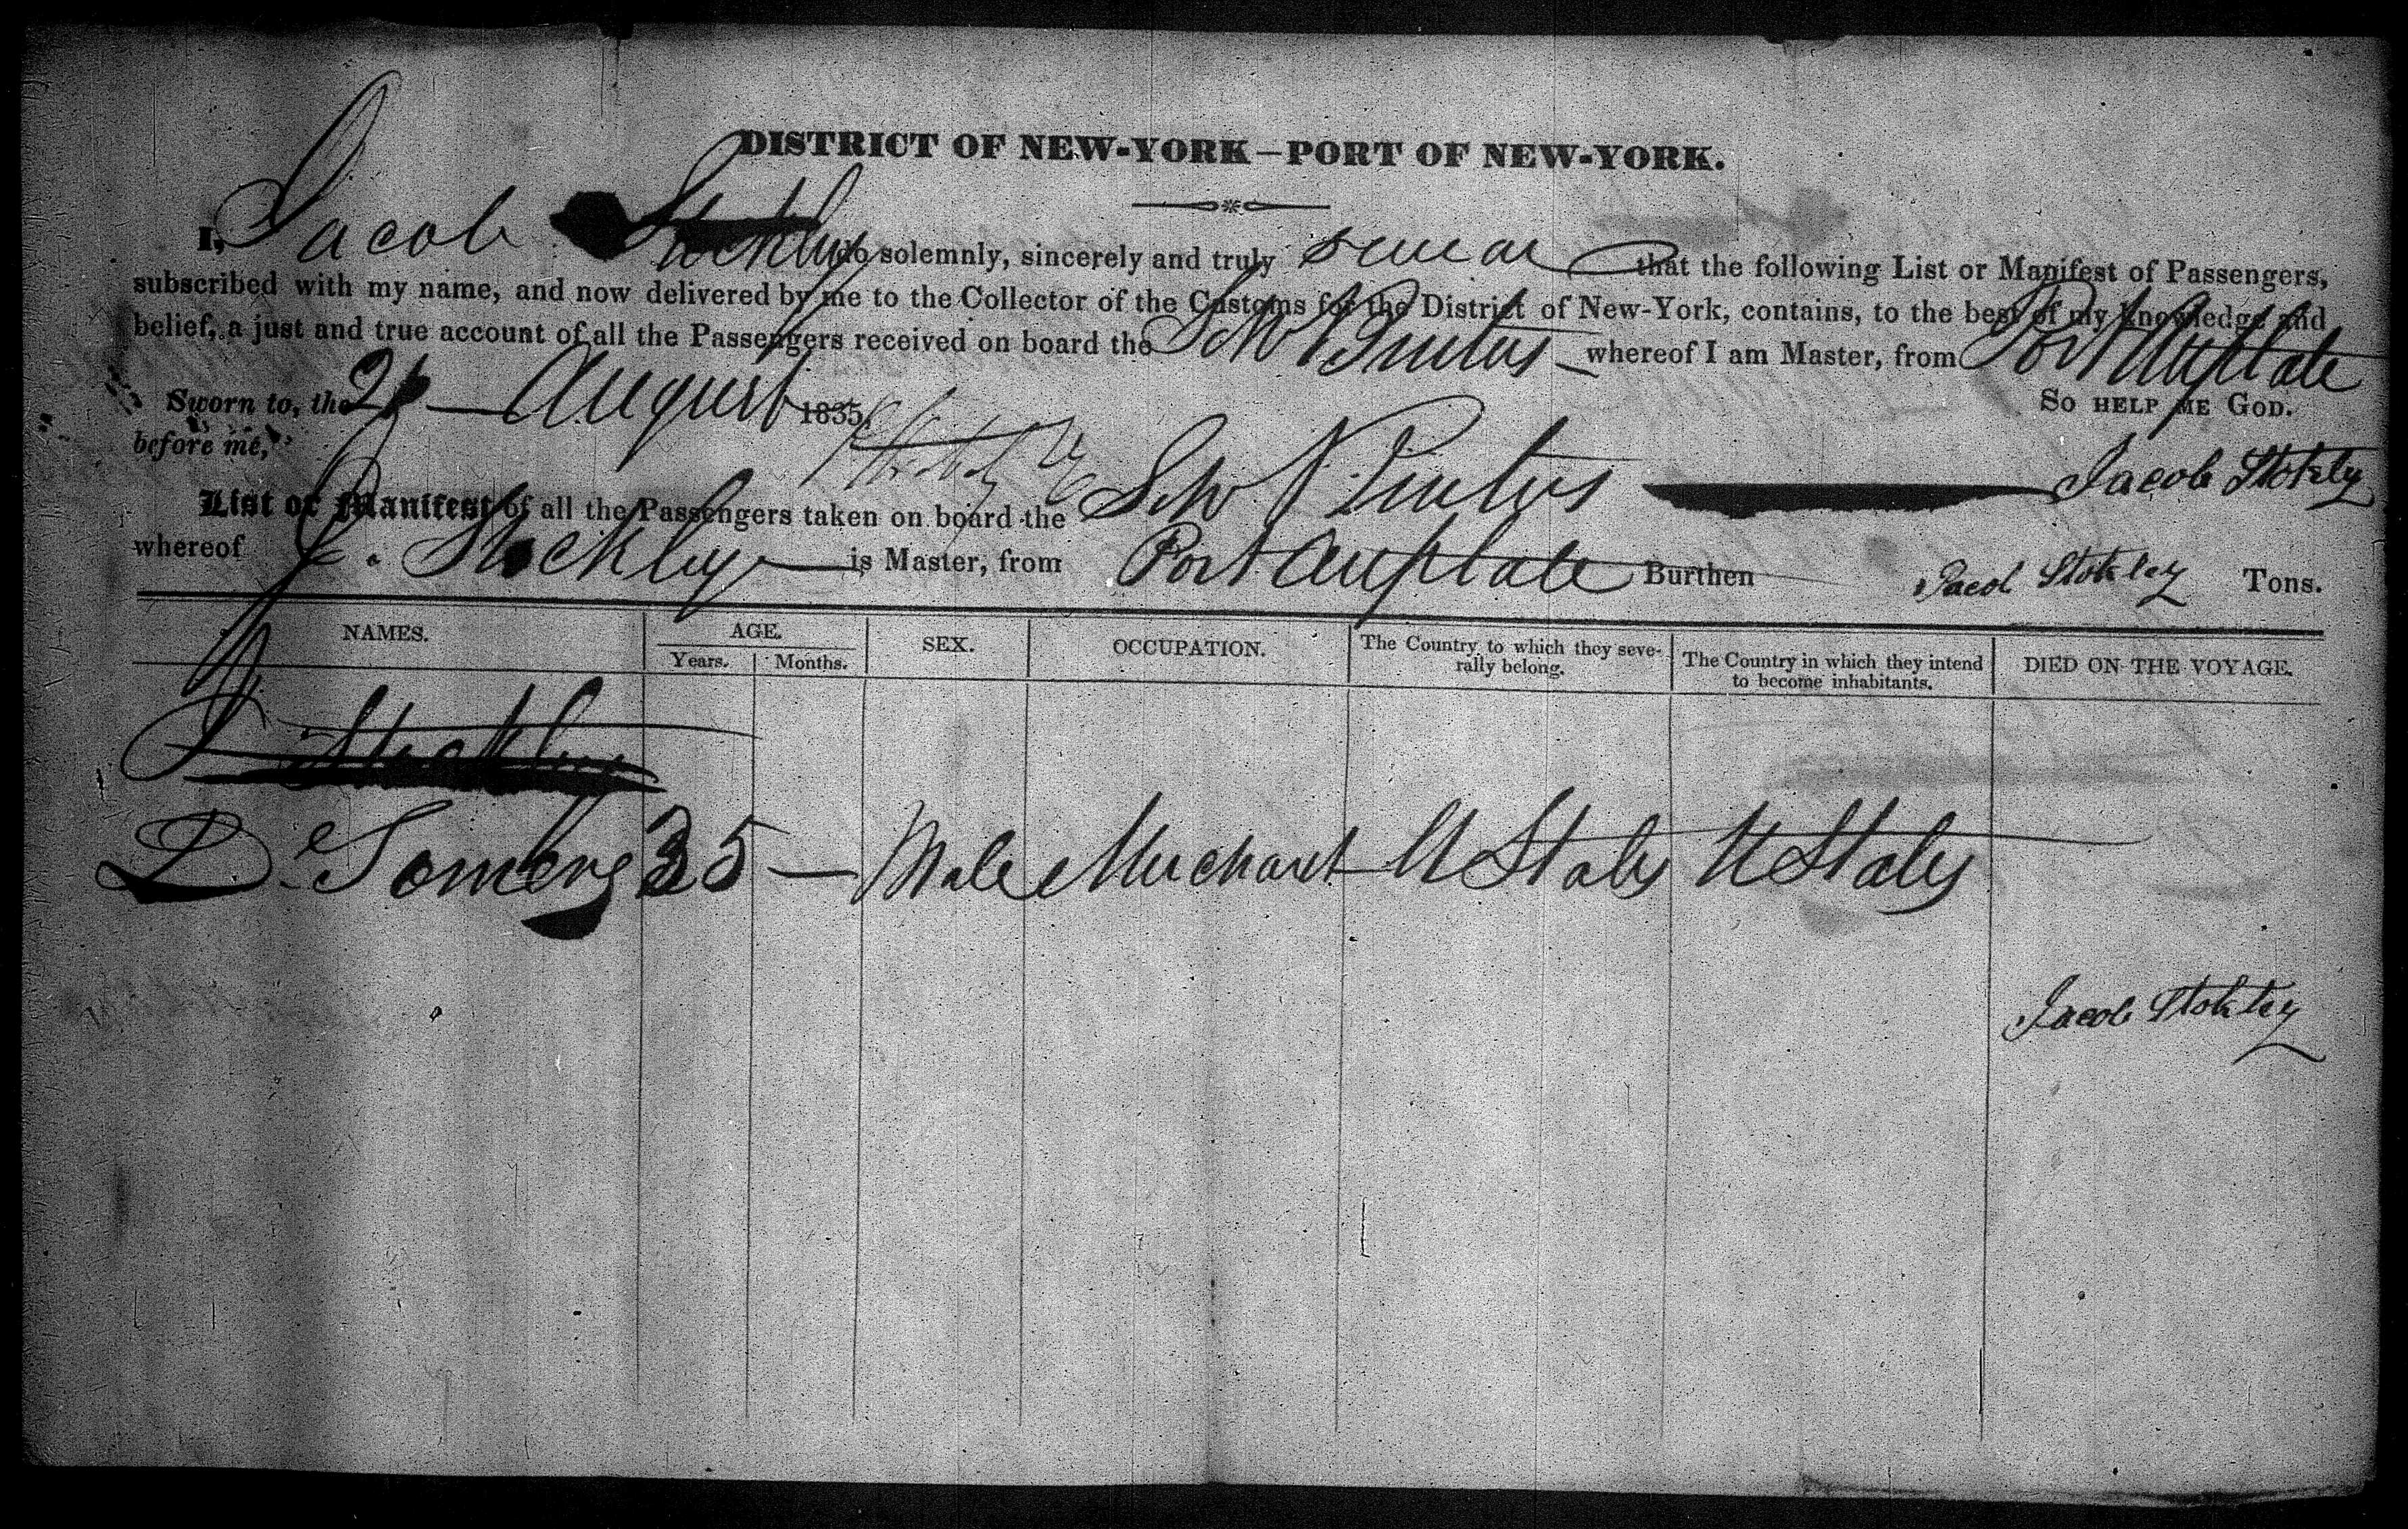 DISTRICT OF NEW-YORK—PORT OF NEW-YORK.
I, Jacob Stockley do solemnly, sincerely and truly swear that the following List or Manifest of Passengers,
subscribed with my name, and now delivered by me to the Collector of the Customs for the District of New-York, contains, to the best of my knowledge and
belief, a just and true account of all the Passengers received on board the Sch whereof I am Master, from Port au plate
Sworn to, the August 1835, So help me God.
before me,
Jacob Stokley
List or Manifest of all the Passengers taken on board the Sch
whereof J. Stockley is Master, from Port au plate Burthen Jacob Stokley Tons.
NAMES. AGE. Years. Months. SEX. OCCUPATION. The Country to which they severally belong. The Country in which they intend to become inhabitants. DIED ON THE VOYAGE.
J. Stockley
35 — Male Merchant U States U States
Jacob Stokley